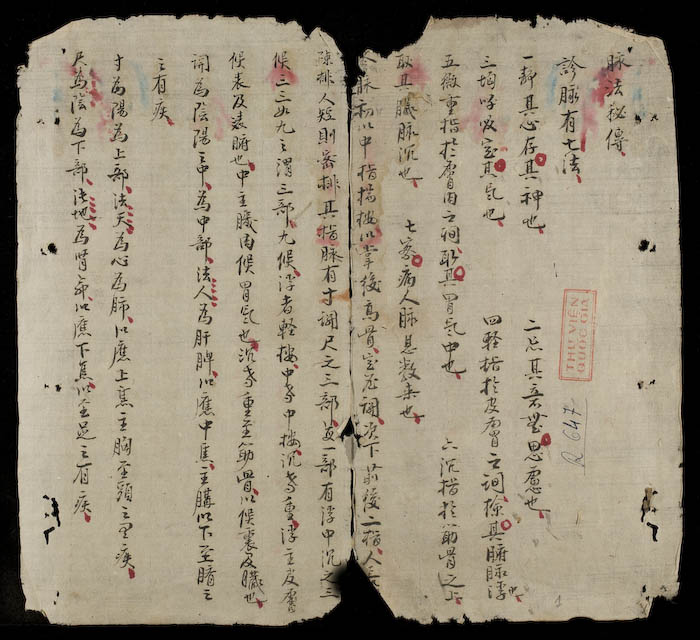 脉法秘傳
診脉有七法
一靜其心存其神也 二忘其意無思慮也
三均呼吸定其氣也 四輕指於皮膚之間探其腑脉浮也
五微重指於膚肉之間取其胃氣中也 六沉指於筋骨之上
取其臟脉沉也 七察病人脉息數来也
脉初以中指揣按以掌後高骨定為関次下前後二指人長
疎排人短則密排其指脉有寸関尺之三部每一部有浮中沉之三
候三三如九之謂三部九候浮者輕按中者中按沉者重浮主皮膚
候表及裏腑也中主臟肉候胃氣也沉者重至筋骨以候裏及臟也
関為陰陽之中為中部法人為肝脾以應中焦主膈以下至臍之
之有疾
寸為陽為上部法天為心為肺以應上焦主胸至頭之有疾
尺為陰為下部法地為腎命以應下焦以至足之有疾
THƯ VIỆN
QUỐC GIA
R 647